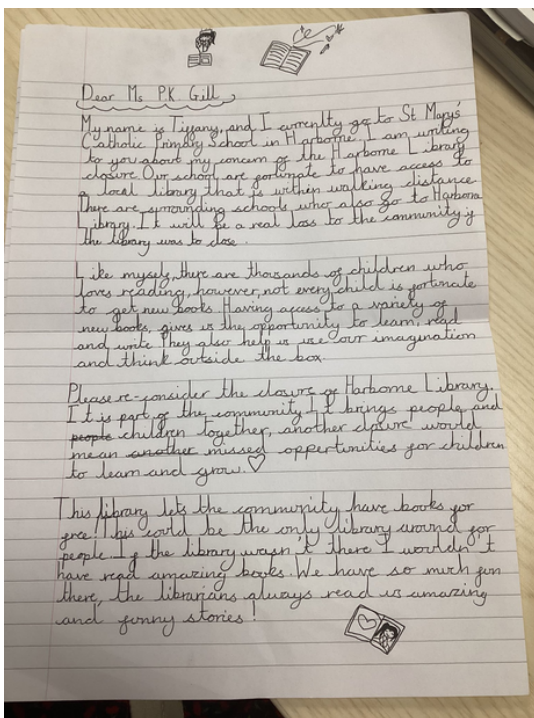 Dear Ms P.K Gill
My name is Tiffany, and I currenltly go to St Marys'
Catholic Primary School in Harborne. I am writing
to you about my concern of the Harborne Library
closure. Our school are fortinate to have access to
a local library that is within walking distance.
There are surrounding schools who also go to Harborne
Library. It will be a real loss to the community if
the library was to close.
Like myself, there are thousands of children who
loves reading, however, not every child is fortinate
to get new books. Having access to a variety of
new books, gives us the opportunity to learn, read
and write. They also help us use our imagination
and think outside the box.
Please re-consider the closure of Harborne Library.
It is part of the community - it brings people and
people children together, another closure would
mean another missed oppertinities for children
to learn and grow.
This library lets the community have books for
free! This could be the only library around for
people. If the library wasn't there I wouldn't
have read amazing books. We have so much fun
there, the librarians always read us amazing
and funny stories!